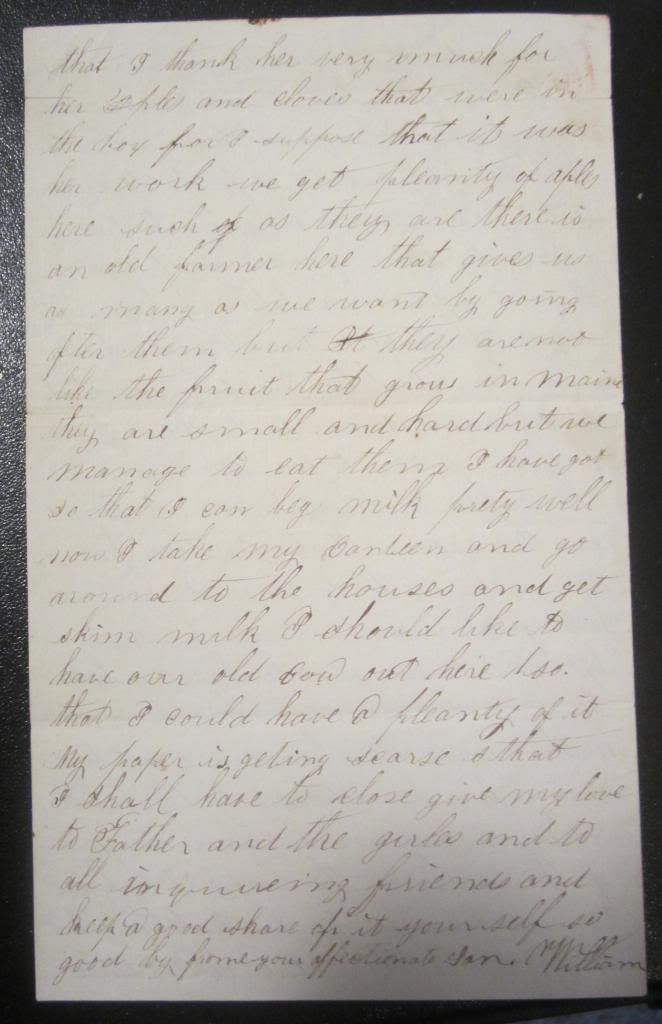 that I thank her very much for
her aples and cloves that were in
the box for I suppose that it was
her work we get pleanity of aples
here such as they are there is
an old farmer here that gives us
as many as we want by going
after them but they are not
like the fruit that grows in Maine
they are small and hard but we
manage to eat them I have got
so that I can beg milk prety well
now I take my canteen and go
around to the houses and get
skim milk I should like to
have our old cow out here so.
that I could have a pleanty of it
My paper is geting scarse so that
I shall have to close give my love
to Father and the girls and to
all inquireing friends and
keep a good share of it yourself so
good by frome your affectionate son. William